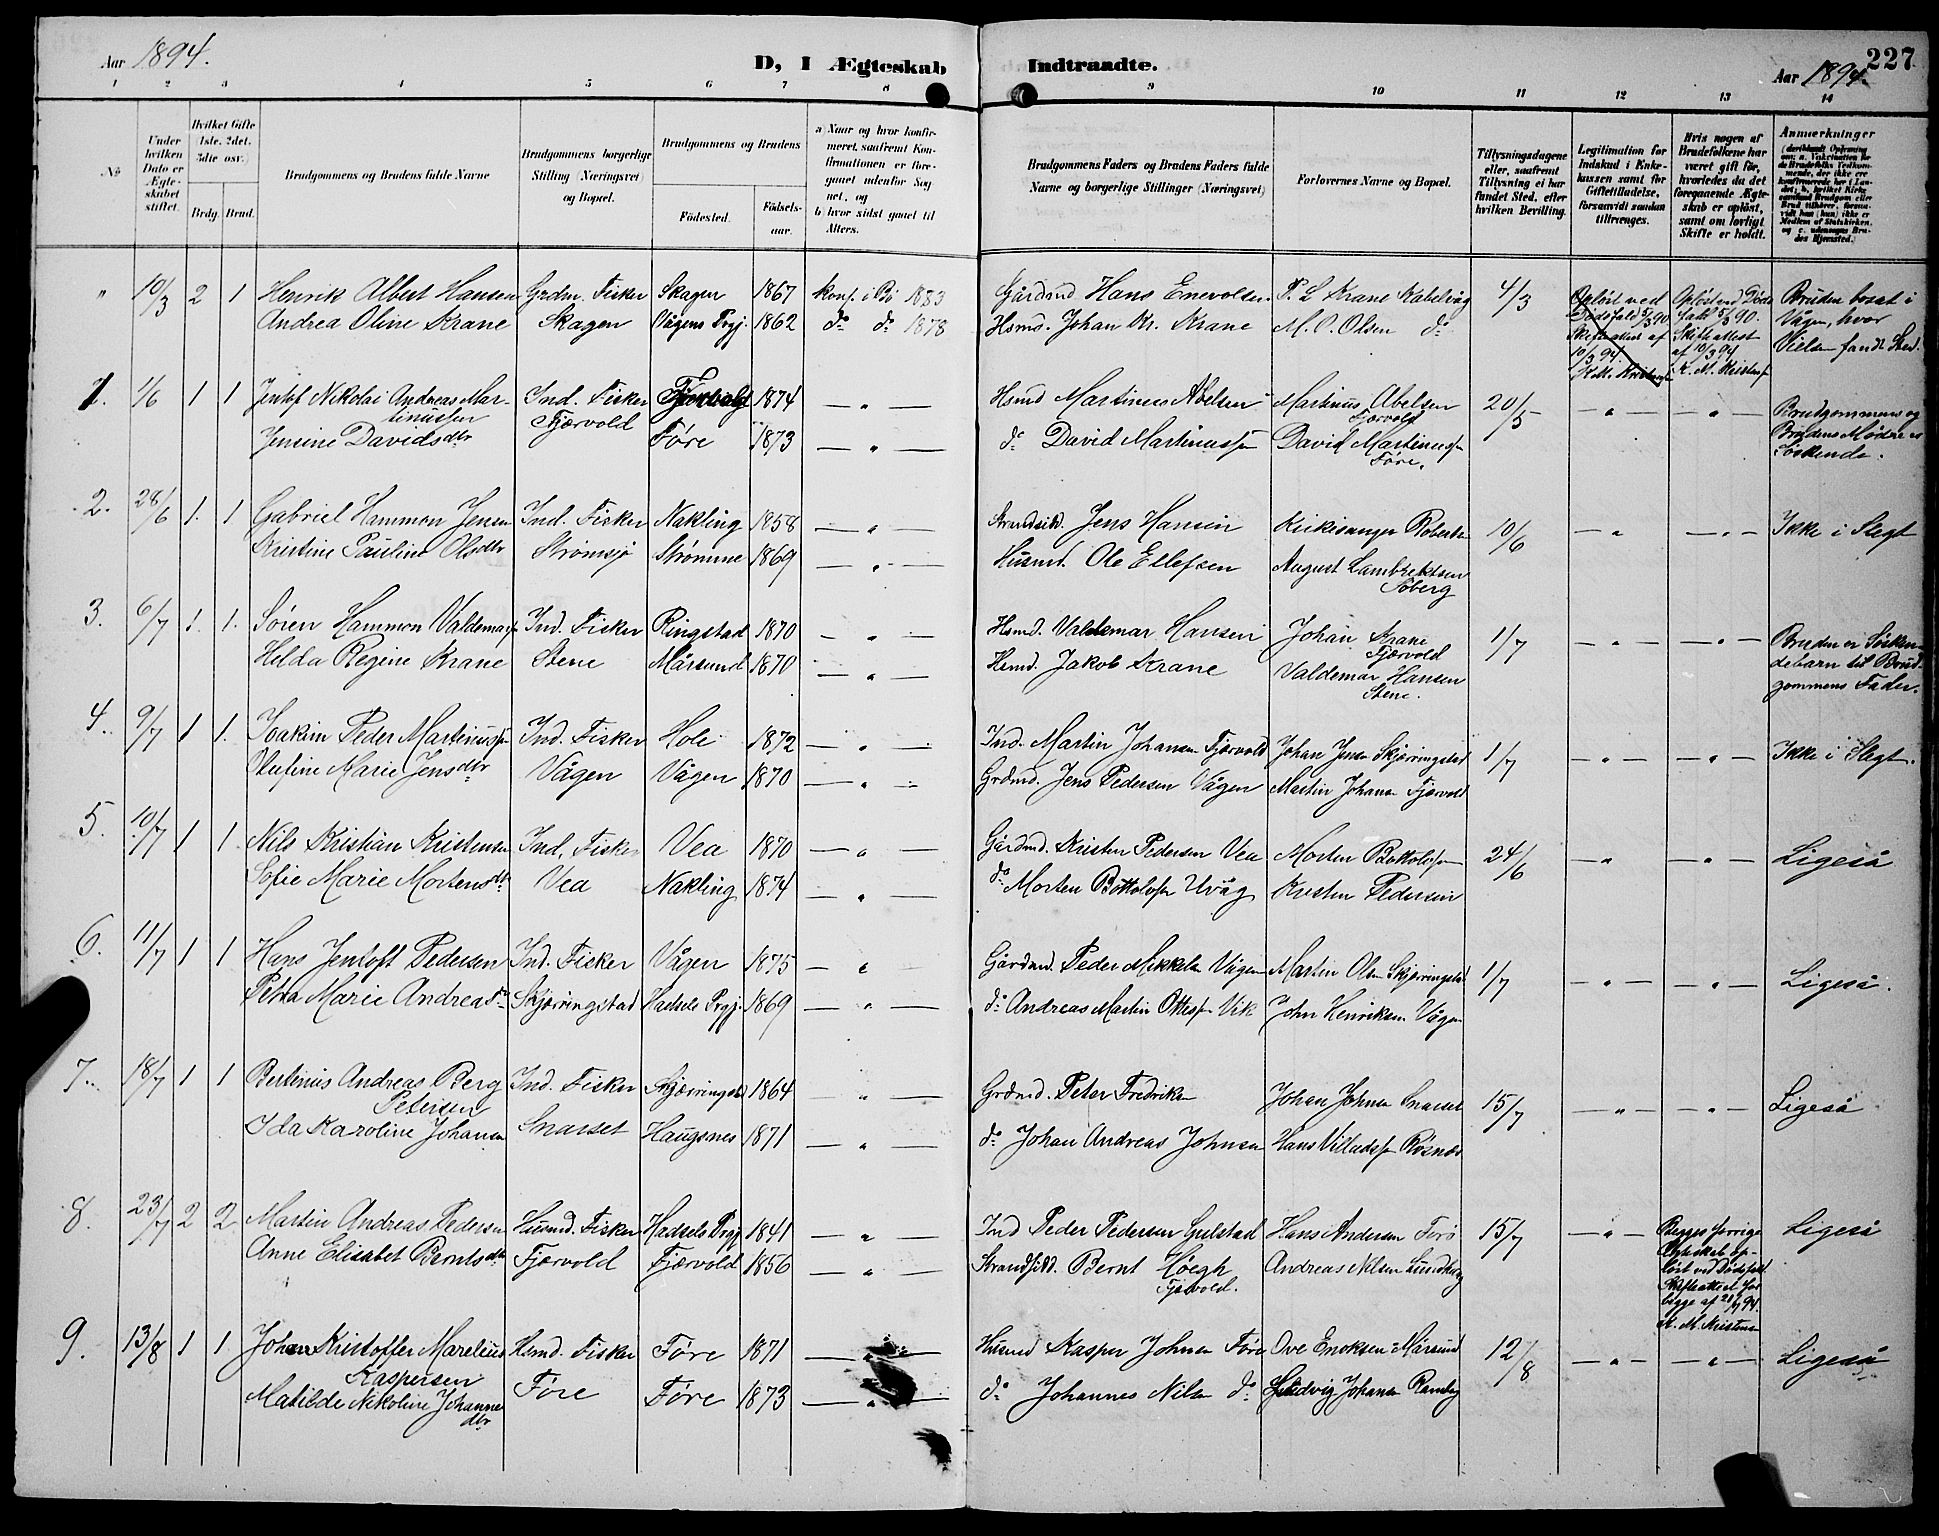 Aar 1894.
D, I Ægteskab Indtraadte.
Aar 1894.
227
1 2 3 4 5 6 7 8 9 10 11 12 13 14
No
Under hvilken Dato er Ægteskabet stiftet.
Hvilket Gifte 1ste, 2det, 3die osv.
Brdg. Brud.
Brudgommens og Brudens fulde Navne
Brudgommens borgerlige Stilling (Næringsvei) og Bopæl.
Brudgommens og Brudens
Fødested. Fødselsaar.
a) Naar og hvor konfirmeret, saafremt Konfirmationen er foregaaet udenfor Sognet, og
b) hvor sidst gaaet til Alters.
Brudgommens Faders og Brudens Faders fulde Navne og borgerlige Stillinger (Næringsvei)
Forlovernes Navne og Bopæl.
Tillysningsdagene eller, saafremt Tillysning ei har fundet Sted, efter hvilken Bevilling.
Legitimation for Indskud i Enkekassen samt for Giftetilladelse, forsaavidt saadan tiltrænges.
Hvis nogen af Brudefolkene har været gift før, hvorledes da det foregaaende Ægteskab er opløst, samt om lovligt Skifte er holdt.
Anmerkninger
" 10/3 2 1 Henrik Albert Hansen Grdm. Fisker Skagen 1867 konf. i Bö 1883 Gårdmd Hans Enevolsen P. L Krane Kabelvåg 4/3
Andrea Oline Krane Skagen Vågens Prgj. 1862 do do 1878 Hsmd. Johan Kr. Krane M. O. Olsen do
Opløst ved Dødsfald 5/3 90. Skifteattest af 10/3 94. K. M. Kristensen
Opløst ved Dødsfald 5/3 90. Skifteattest af 10/3 94 K. M. Kristens
Bruden bosat i Vågen, hvor Vielsen fandt Sted.
1. 1/6 1 1 Jentof Nikolai Andreas Martinussen Ind. Fisker Fjærvold 1874 — " — Hsmd Martinus Abelsen Martinus Abelsen Fjærvold 20/5 — " — — " — Brudgommens og Brudens Mödre er Söskende.
Jensine Davidsdtr Fjærvold Føre 1873 — " — do David Martinussen David Martinussen Føre.
2. 28/6 1. 1 Gabriel Hammon Jensen Ind. Fisker Nakling 1858 — " — Strandsid. Jens Hansen Kirkesanger Robertsen 10/6 — " — — " — Ikke i Slegt
Kristine Pauline Olsdtr Strömsjö Strömme 1869 — " — Husmd. Ole Ellefsen August Lambrektsen Söberg
3. 6/7 1. 1. Sören Hammon Valdemarsen Ind. Fisker Ringstad 1870 — " — Hsmd. Valdemar Hansen Johan Krane Fjærvold 1/7 — " — — " — Bruden er Söskendebarn til Brudgommens Fader.
Helda Regine Krane Stene Mårsund 1870 — " — Hsmd. Jakob Krane Valdemar Hansen Stene.
4. 9/7 1 1. Joakim Peder Martinussen Ind. Fisker Hole 1872 — " — Ind. Martin Johansen Fjærvold Johan Jensen Skjörringstad 1/7 — " — — " — Ikke i Slegt.
Olufine Marie Jensdtr Vågen Vågen 1870 — " — Grdmd. Jens Pedersen Vågen Martin Johansen Fjærvold
5. 10/7 1 1. Nils Kristian Kristensen Ind. Fisker Vea 1870 — " — Gårdmd. Kristen Pedersen Vea Morten Bottolvsen 24/6 — " — — " — Ligeså
Sofie Marie Mortensdtr Vea Nakling 1874 — " — do Morten Bottolvsen Uvåg Kristen Pedersen
6. 11/7 1 1 Hans Jentoft Pedersen Ind. Fisker Vågen 1875 — " — Gårdmd. Peder Mikkelsen Vågen Martin Olsen Skjörringstad 1/7 — " — — " — Ligeså.
Petra Marie Andreasdtr Skjörringstad Hadsels Prgj. 1869 — " — do Andreas Martin Ottesen Vik John Henriksen Vågen
7. 18/7 1 1 Bertinus Andreas Berg Petersen Ind. Fisker Skjörringstad 1864 — " — Grdmd. Peter Fredriksen Johan Johnsen Snarset 15/7 — " — — " — Ligeså
Ida Karoline Johansen Snarset Haugsnes 1871 — " — do Johan Andreas Johnsen Hans Villadsen Røsnes
8. 23/7 2 2 Martin Andreas Pedersen Husmd. Fisker Hadsels Prgj 1841 — " — Ind Peder Pedersen Gulstad Hans Andersen Forö 15/7 — " — Begges forrige Ægteskab oplöst ved Dödsfald. Skifteattest for begge af 21/7 94. K. M. Kristensen Ligeså
Anne Elisabet Berntsdtr Fjærvold Fjærvold 1856 — " — Strandsidd. Bernt Höegh Fjærvold. Andreas Nilsen
9. 13/8 1 1. Johan Kristoffer Marelius Kaspersen Hsmd. Fisker Føre 1871 — " — Husmd Kasper Johnsen Føre Ove Enoksen Mårsund 12/8 — " — — " — Ligeså
Matilde Nekoline Johannesdtr Føre Føre 1873 — " — do Johannes Nilsen do Ludvig Johansen Ramberg